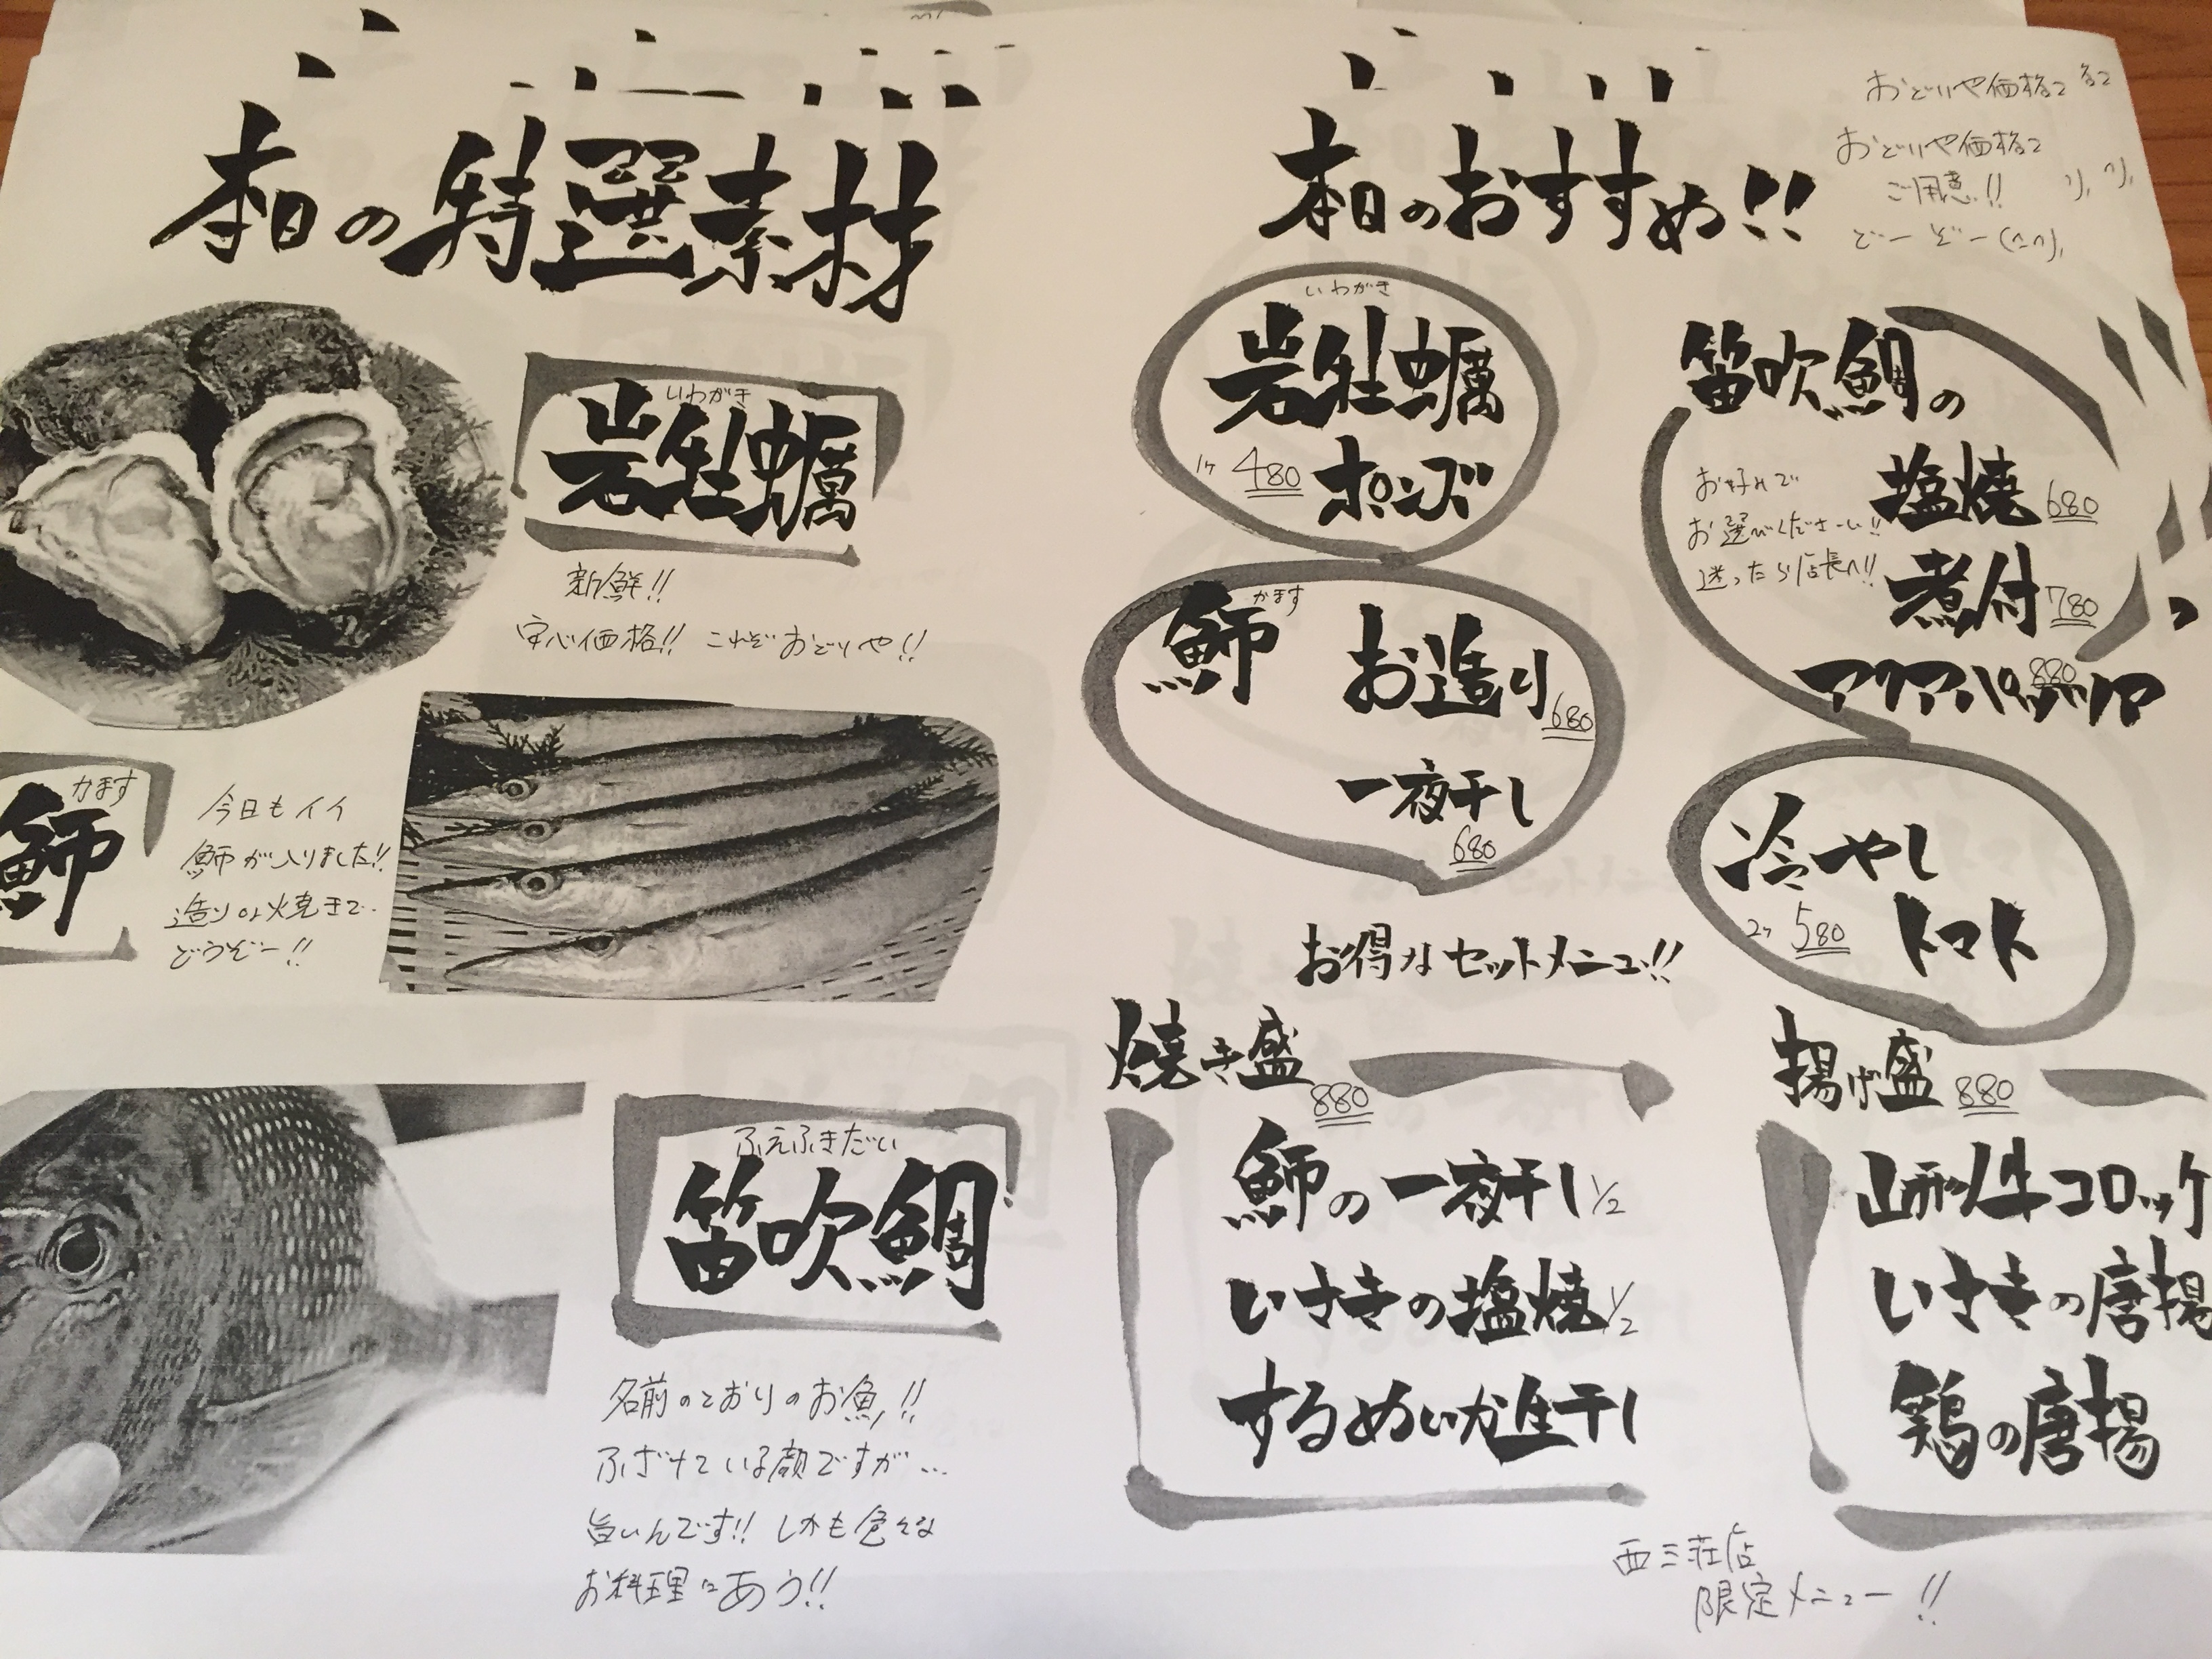 本日の特選素材
いわがき
岩牡蠣
新鮮!!
安心価格!! これぞおどりや!!
かます
魳
今日もイイ
魳が入りました!!
造りor焼きで…
どうぞー!!
ふえふきだい
笛吹鯛
名前のとおりのお魚!!
ふざけている顔ですが…
旨いんです!! しかも色々な
お料理にあう!!
本日のおすすめ!!
おどりや価格で
おどりや価格で
ご用意!!
どーぞー
いわがき
岩牡蠣
1ヶ 480 ポンズ
魳 かます お造り 680
一夜干し
680
笛吹鯛の
お好みで
お選びくださーい!!
迷ったら店長へ!!
塩焼 680
煮付 780
アクアパッツァ 880
冷やし
2ヶ 580 トマト
お得なセットメニュー!!
焼き盛 880
魳の一夜干し 1/2
いさきの塩焼 1/2
するめいか生干し
揚げ盛 880
山形牛コロッケ
いさきの唐揚
鶏の唐揚
西三荘店
限定メニュー!!